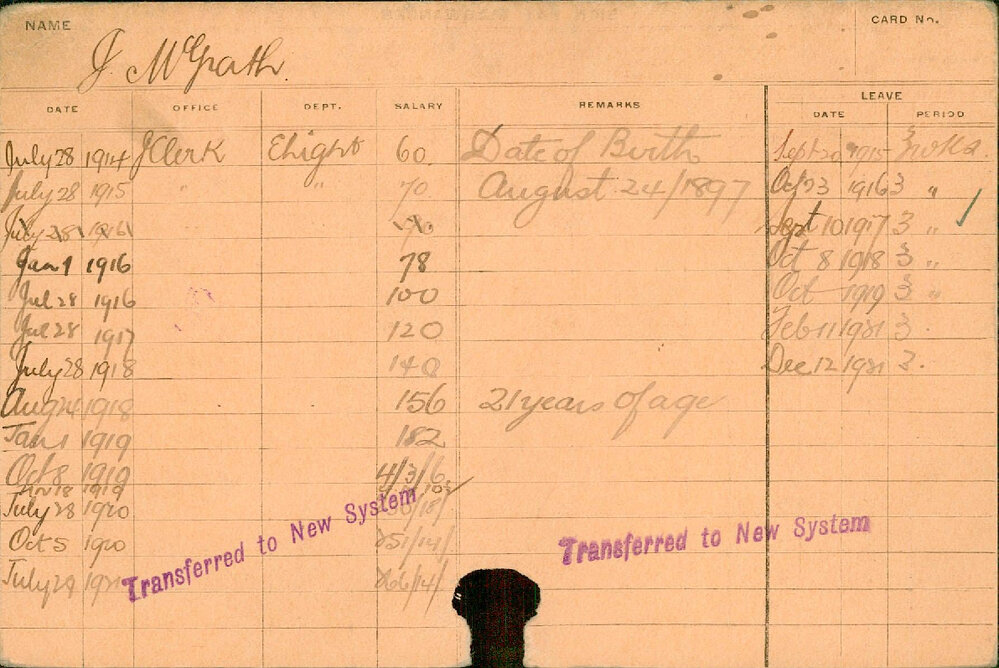 NAME
CARD No.
J. McGrath.
DATE OFFICE DEPT. SALARY REMARKS LEAVE
DATE PERIOD
July 28 1914 J Clerk Elight 60. Date of Birth Sept 20 1915 3 wks.
July 28 1915 " " 70 August 24/1897 Oct 23 1916 3 "
July 28 1916 Sept 10 1917 3 "
Jan 1 1916 78 Oct 8 1918 3 "
Jul 28 1916 100 Oct 1919 3 "
Jul 28 1917 120 Feb 11 1921 3.
July 28 1918 140 Dec 12 1921 3.
Aug 24 1918 156 21 years of age
Jan 1 1919 182
Oct 8 1919 4/3/6
Nov 18 1919
July 28 1920
Oct 5 1920
July 29
Transferred to New System
Transferred to New System